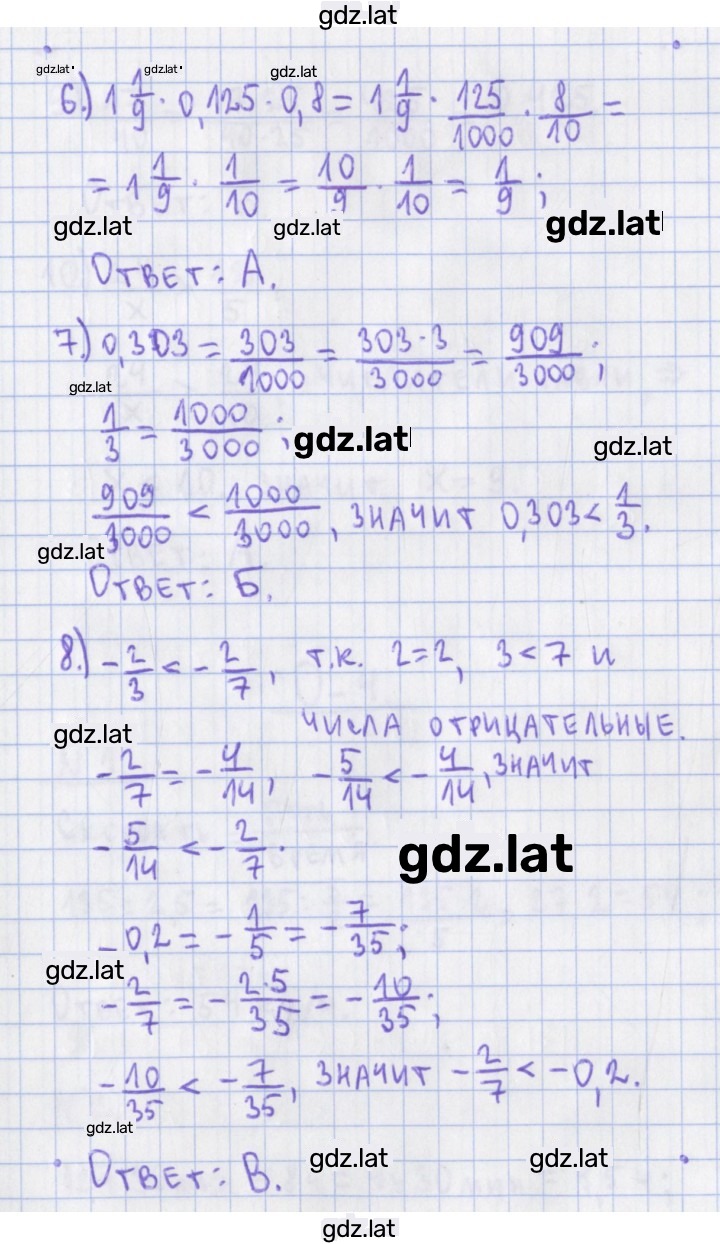 gdz.lat
gdz.lat gdz.lat gdz.lat
6.) 1 1/9 · 0,125 · 0,8 = 1 1/9 · 125/1000 · 8/10 =
= 1 1/9 · 1/10 = 10/9 · 1/10 = 1/9;
gdz.lat gdz.lat gdz.lat
Ответ: А.
7.) 0,303 = 303/1000 = 303·3/3000 = 909/3000;
gdz.lat
1/3 = 1000/3000;
gdz.lat gdz.lat
909/3000 < 1000/3000, значит 0,303 < 1/3.
gdz.lat
Ответ: Б.
8.) -2/3 < -2/7, т.к. 2=2, 3<7 и
числа отрицательные.
gdz.lat
-2/7 = -4/14, -5/14 < -4/14, значит
-5/14 < -2/7.
gdz.lat
-0,2 = -1/5 = -7/35;
gdz.lat
-2/7 = -2·5/35 = -10/35;
-10/35 < -7/35, значит -2/7 < -0,2.
gdz.lat
Ответ: В.
gdz.lat gdz.lat
gdz.lat